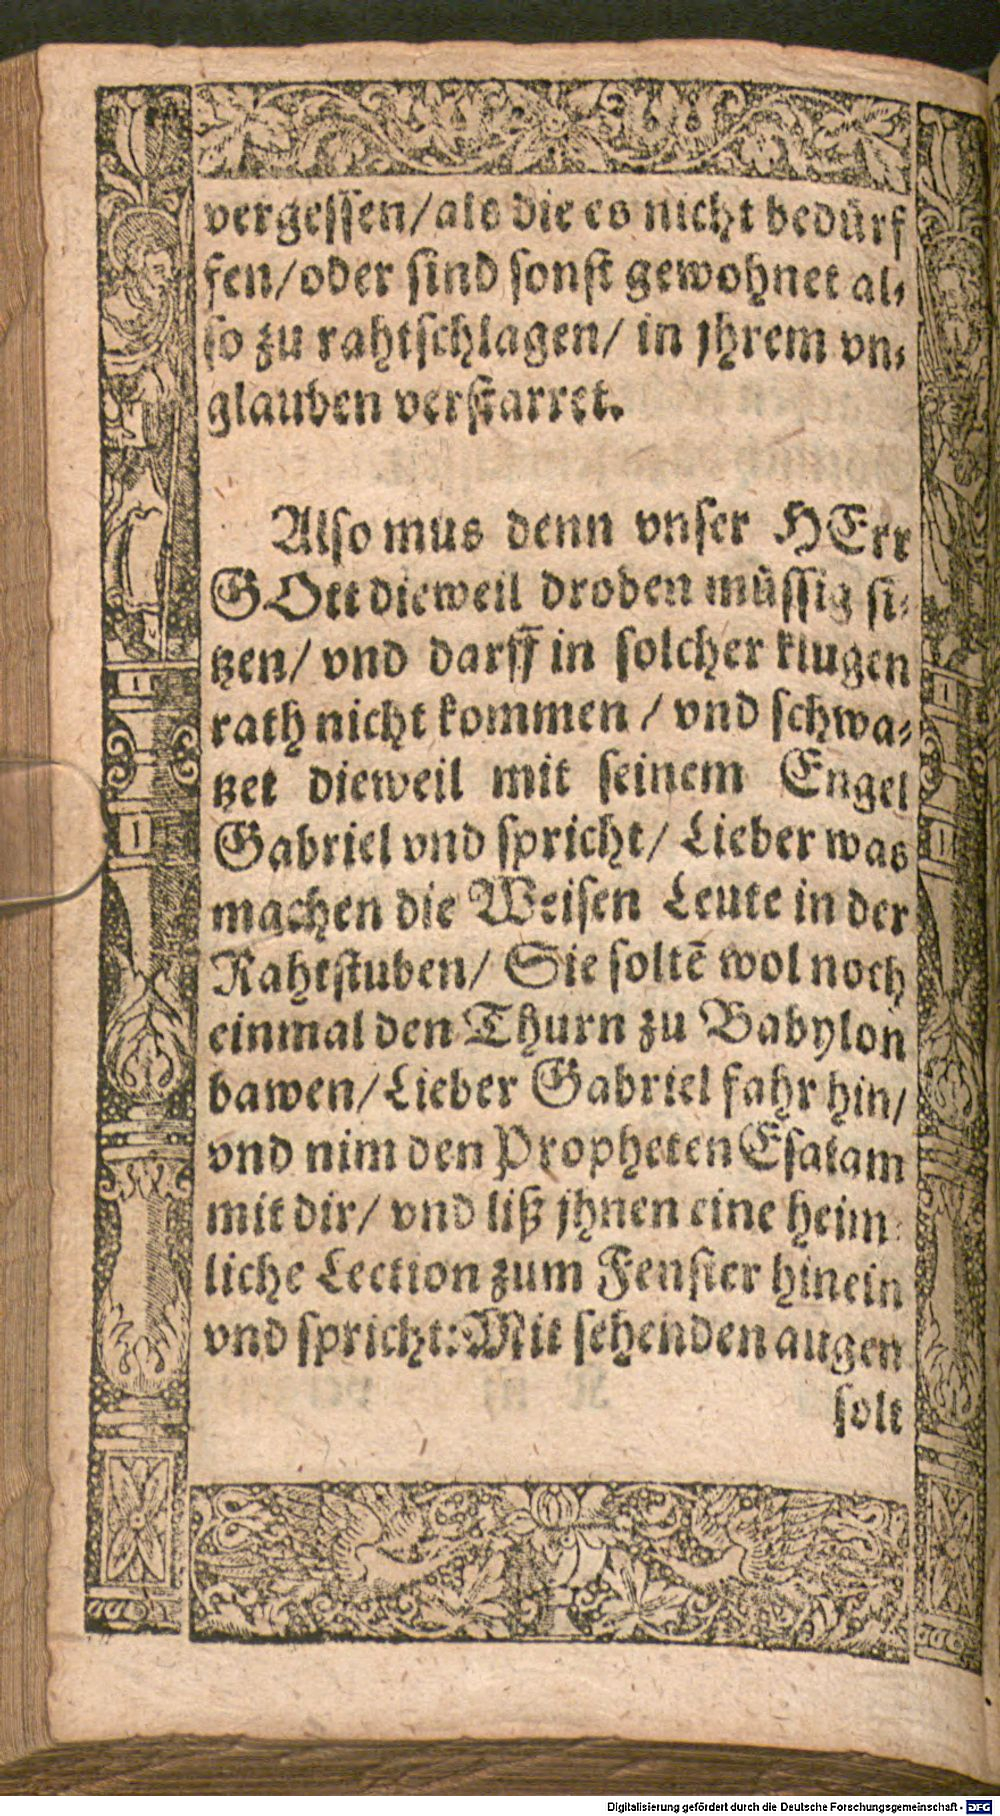 vergessen/als die es nicht bedürf
fen/oder sind sonst gewohnet al⸗
so zu rahtschlagen/ in jhrem vn⸗
glauben verstarret.
Also mus denn vnser HErr
GOtt dieweil droben müssig si⸗
tzen/ vnd darff in solcher klugen
rath nicht kommen / vnd schwa⸗
tzet dieweil mit seinem Engel
Gabriel vnd spricht/ Lieber was
machen die Weisen Leute in der
Rahtstuben/ Sie soltē wol noch
einmal den Thurn zu Babylon
bawen/Lieber Gabriel fahr hin/
vnd nim den Propheten Esaiam
mit dir/ vnd liß jhnen eine heim⸗
liche Lection zum Fenster hinein
vnd spricht: Mit sehenden augen
solt
Digitalisierung gefördert durch die Deutsche Forschungsgemeinschaft - DFG